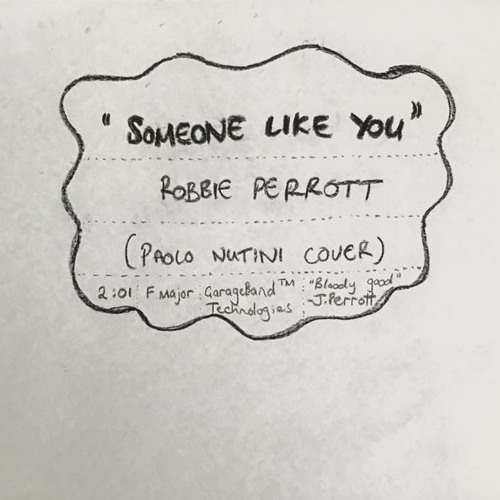 "SOMEONE LIKE YOU"
ROBBIE PERROTT
(PAOLO NUTINI COVER)
2:01 F Major GarageBand™ Technologies "Bloody good" -J.Perrott